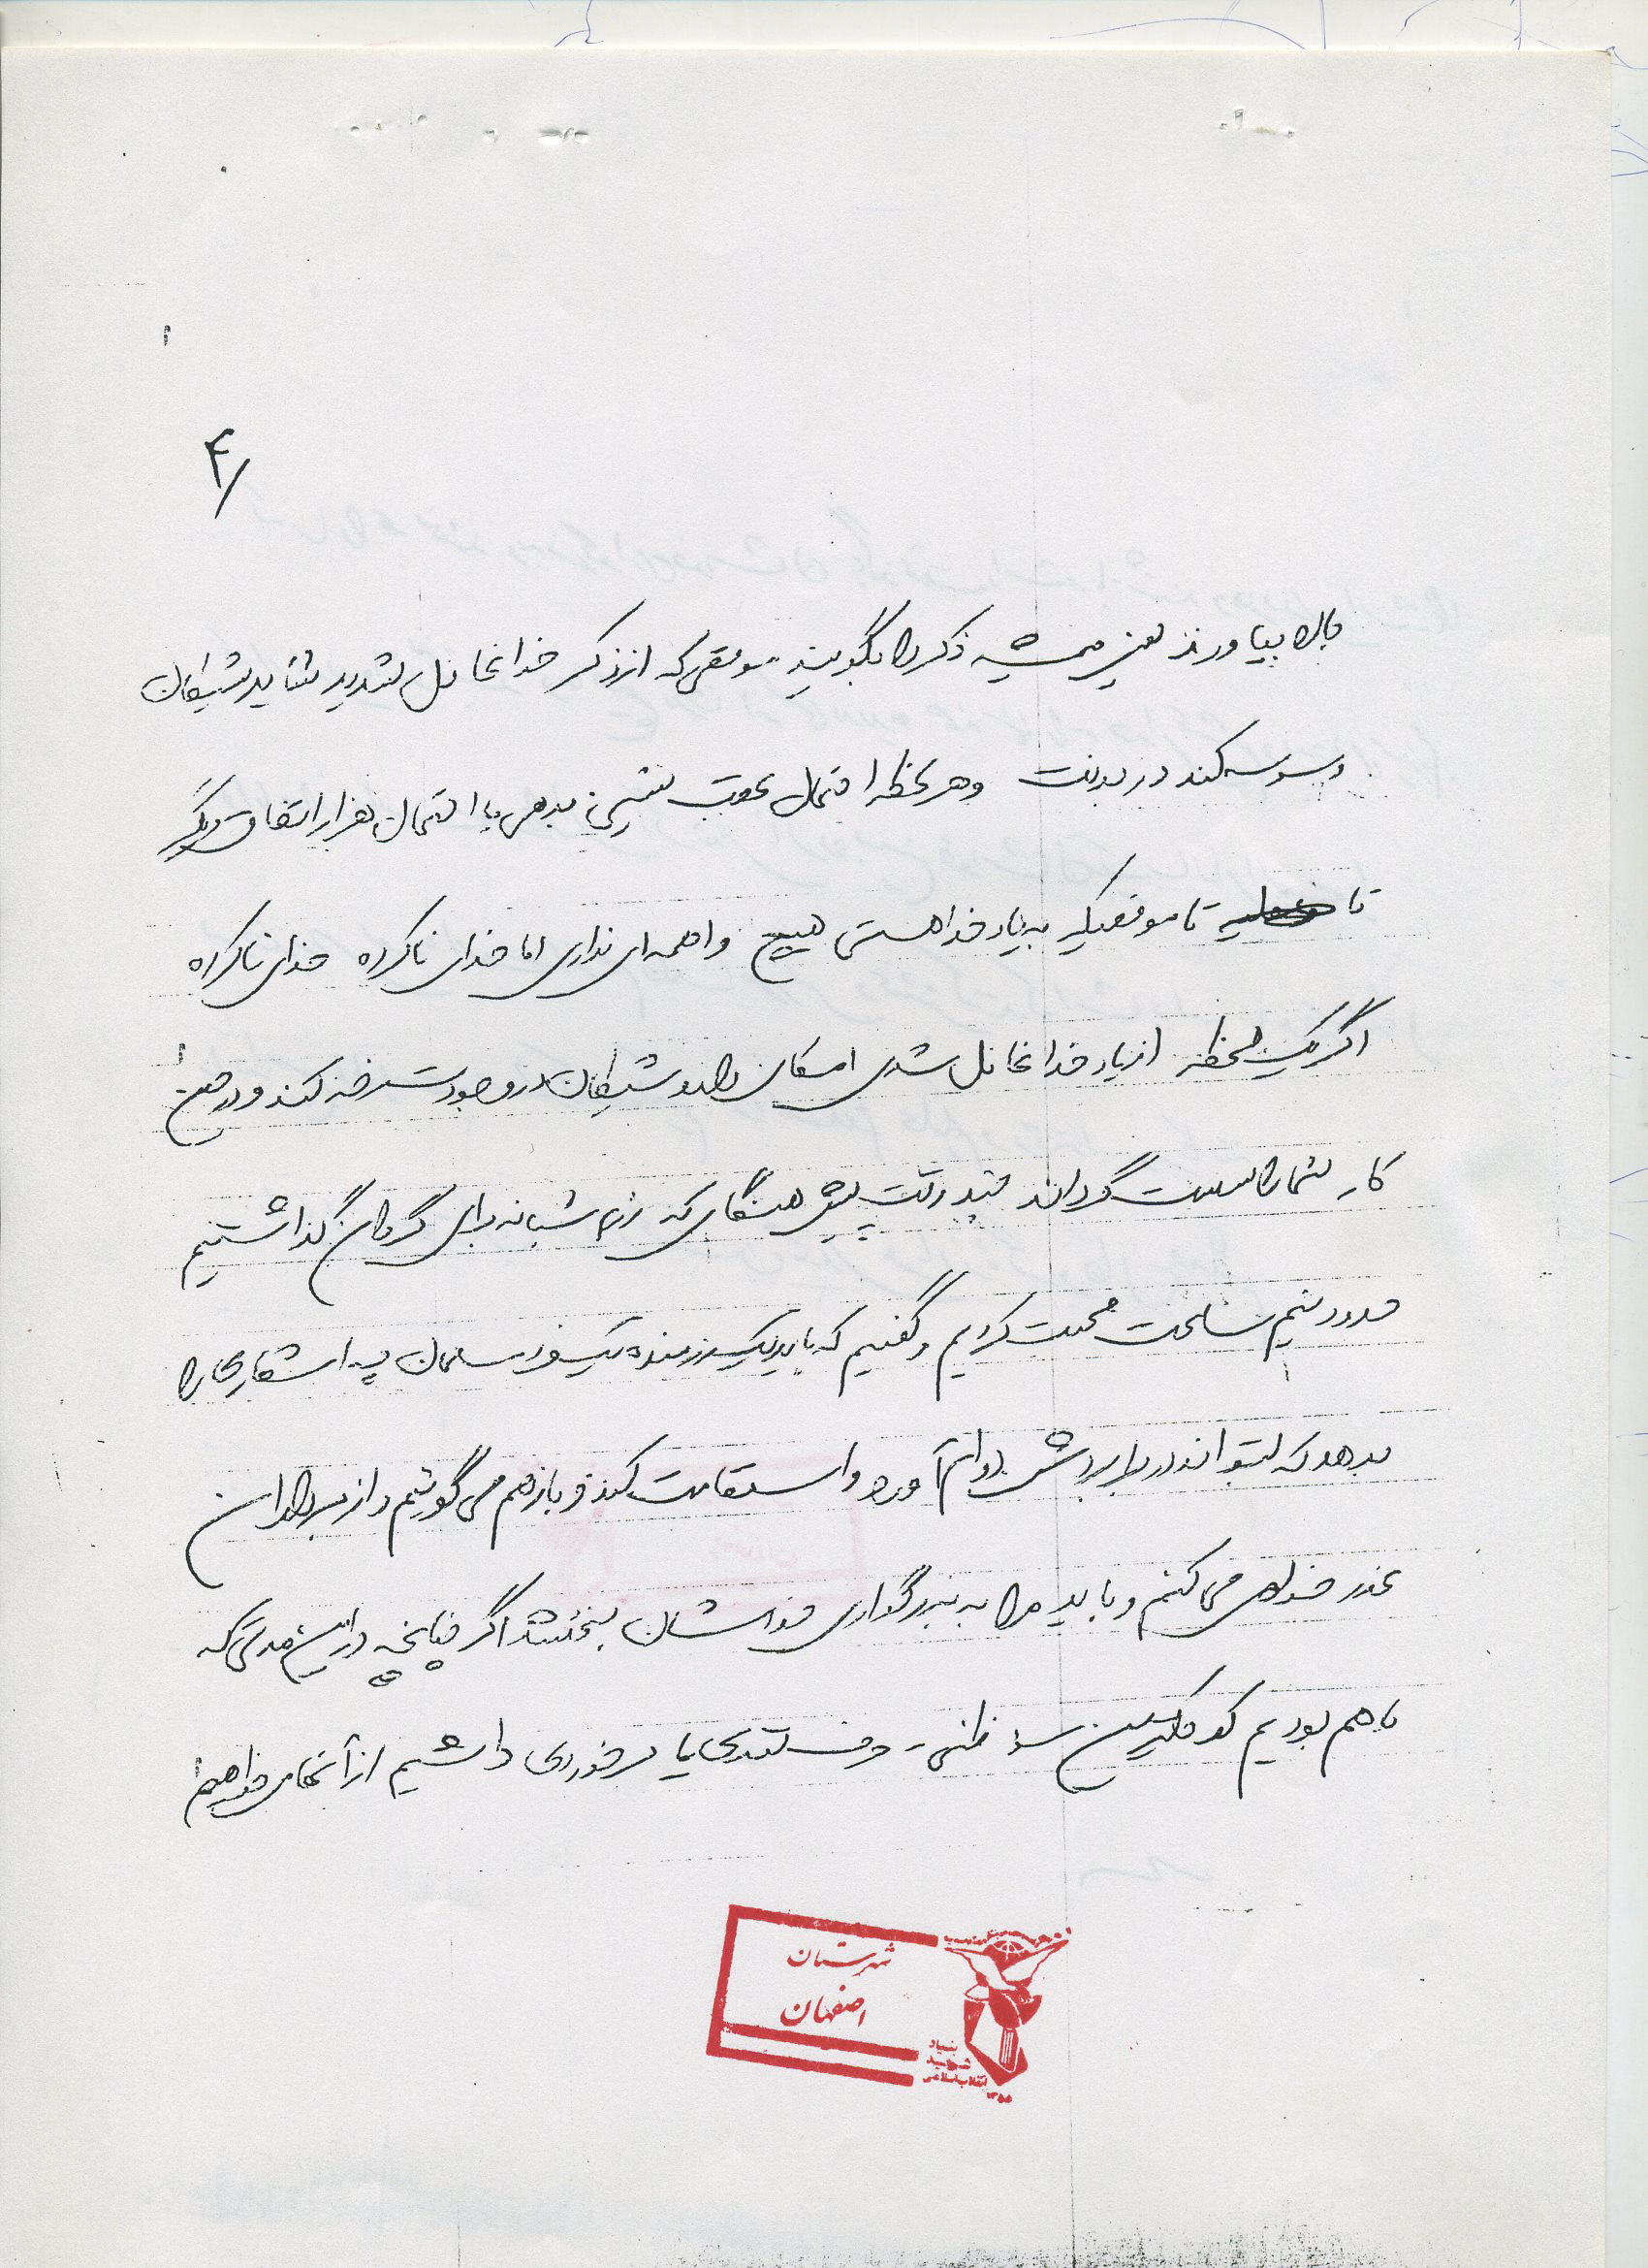 ۴/
بالا بیاورند یعنی همیشه ذکر را بگویند موقعی که از ذکر خدا غافل شدید شاید شیطان
وسوسه کند در بدنت و هر لحظه احتمال عقب نشینی بدهی یا احتمال هزار اتفاق دیگر
تا تا موقعیکه به یاد خدا هستی هیچ واهمه‌ای نداری اما خدای ناکرده خدای ناکرده
اگر یک لحظه از یاد خدا غافل شدی امکان دارد شیطان در وجودت رخنه کند و در حین
کار شما را سست گرداند چند وقت پیش هنگامی که رزم شبانه برای گردان گذاشتیم
حدود نیم ساعت صحبت کردیم و گفتیم که باید یک رزمنده یک نفر مسلمان چه اشعاری را
بدهد که بتواند در برابرش دوام آورد و استقامت کند و باز هم می گوئیم و از برادران
عذر خواهی می کنم و باید مرا به بزرگواری خودشان ببخشند اگر چنانچه در این مدتی که
با هم بودیم کوچکترین سوء ظنی - حرف تندی یا برخوردی داشتیم از آنها می خواهیم
شهرستان
اصفهان
بنیاد
شهید
انقلاب اسلامی